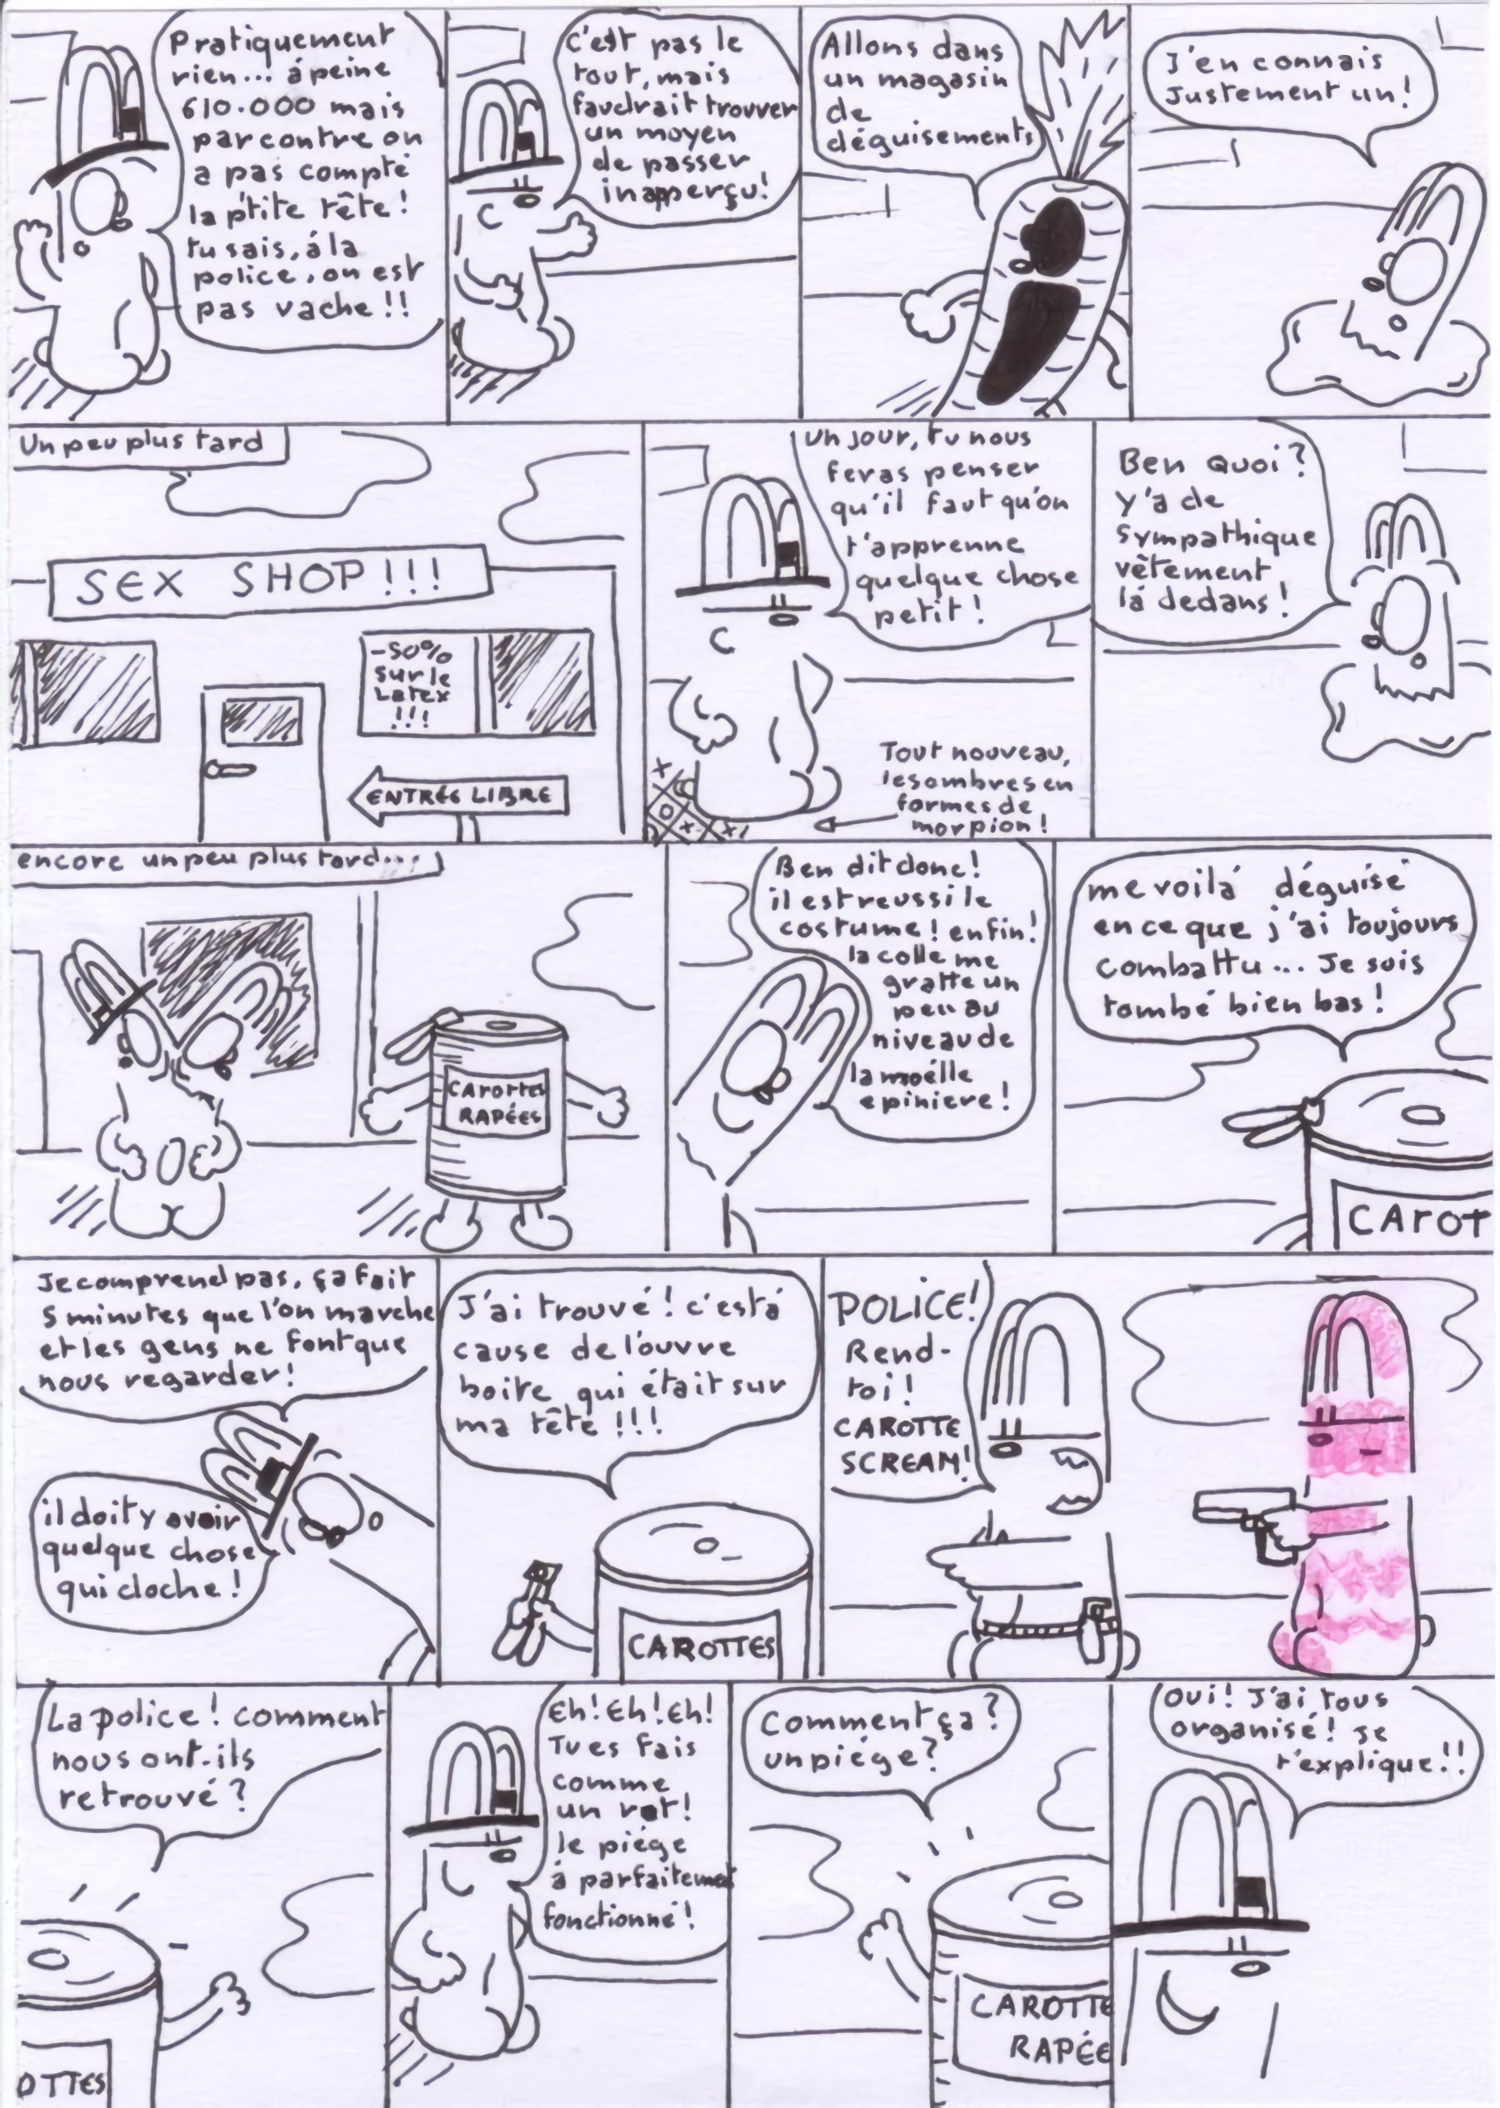 Pratiquement
rien... à peine
610.000 mais
par contre on
a pas compté
la p'tite tête!
tu sais, à la
police, on est
pas vache!!
c'est pas le
tout, mais
faudrait trouver
un moyen
de passer
inapperçu!
Allons dans
un magasin
de
déguisements
J'en connais
Justement un!
Un peu plus tard
SEX SHOP!!!
-50%
sur le
Latex
!!!
ENTRÉE LIBRE
Un jour, tu nous
feras penser
qu'il faut qu'on
t'apprenne
quelque chose
petit!
Tout nouveau,
les ombres en
formes de
morpion!
Ben quoi?
y'a de
sympathique
vêtement
là dedans!
encore un peu plus tard...
CAROTTES
RAPÉES
Ben dit donc!
il est reussi le
costume! enfin!
la colle me
gratte un
peu au
niveau de
la moélle
epiniere!
me voilà déguisé
en ce que j'ai toujours
combattu... Je suis
tombé bien bas!
CAROT
Je comprend pas, ça fait
5 minutes que l'on marche
et les gens ne font que
nous regarder!
il doit y avoir
quelque chose
qui cloche!
J'ai trouvé! c'est à
cause de l'ouvre
boite qui était sur
ma tête!!!
CAROTTES
POLICE!
Rend-
toi!
CAROTTE
SCREAM!
La police! comment
nous ont-ils
retrouvé?
OTTES
Eh! Eh! Eh!
Tu es fais
comme
un rat!
le piége
à parfaitement
fonctionné!
Comment ça?
un piége?
CAROTTE
RAPÉE
Oui! J'ai tous
organisé! Je
t'explique!!